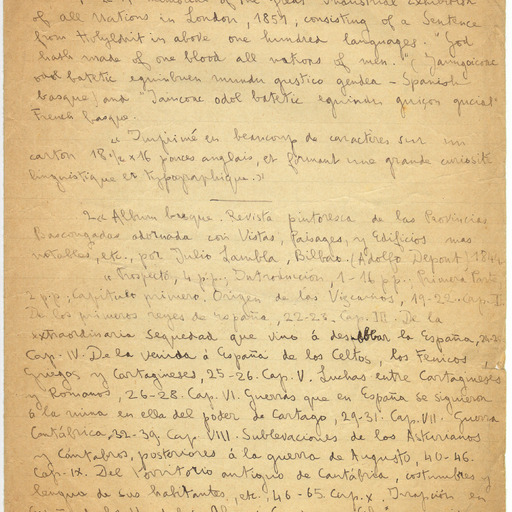 of all Nations in London, 1851, consisting of a Sentence
from Holy Writ in above one hundred languages. "God
hath made of one blood all nations of men." (Jaungoicoac
odol batetic eguin buen mundu gustico gendea - Spanish
basque) and "Jaincoac odol batetic eguin du guiçon guciac"
French basque.
« Imprimé en beaucoup de caractères sur un
carton 18 ½ x 16 pouces anglais, et formant une grande curiosité
linguistique et typographique. »
2. « Album basque. Revista pintoresca de las Provincias
Bascongadas adornada con Vistas, Paisages, y Edificios mas
notables, etc., por Julio Lambla, Bilbao (Adolfo Depont) 184
« Prospecto, 4 p.p., Introducción, 1-16 p.p. Primera Parte
2 p.p., Capitulo primero. Origen de los Vizcainos, 19-22. Cap. II.
De los primeros reyes de España, 22-23. Cap. III. De la
extraordinaria sequedad que vino á la España, 24-2
Cap. IV. De la venida á España de los Celtos, los Fenicos,
Griegos y Cartagineses, 25-26. Cap. V. Luchas entre Cartagineses
y Romanos, 26-28. Cap. VI. Guerras que en España se siguieron
ó la ruina en ella del poder de Cartago, 29-31. Cap. VII. Guerra
Cantábrica, 32-39. Cap. VIII. Sublevaciones de los Asturianos
y Cántabros, posteriores á la guerra de Augusto, 40-46.
Cap. IX. Del territorio antiguo de Cantábria, costumbres y
lengua de sus habitantes, etc., 46-65. Cap. X. Irrupción en